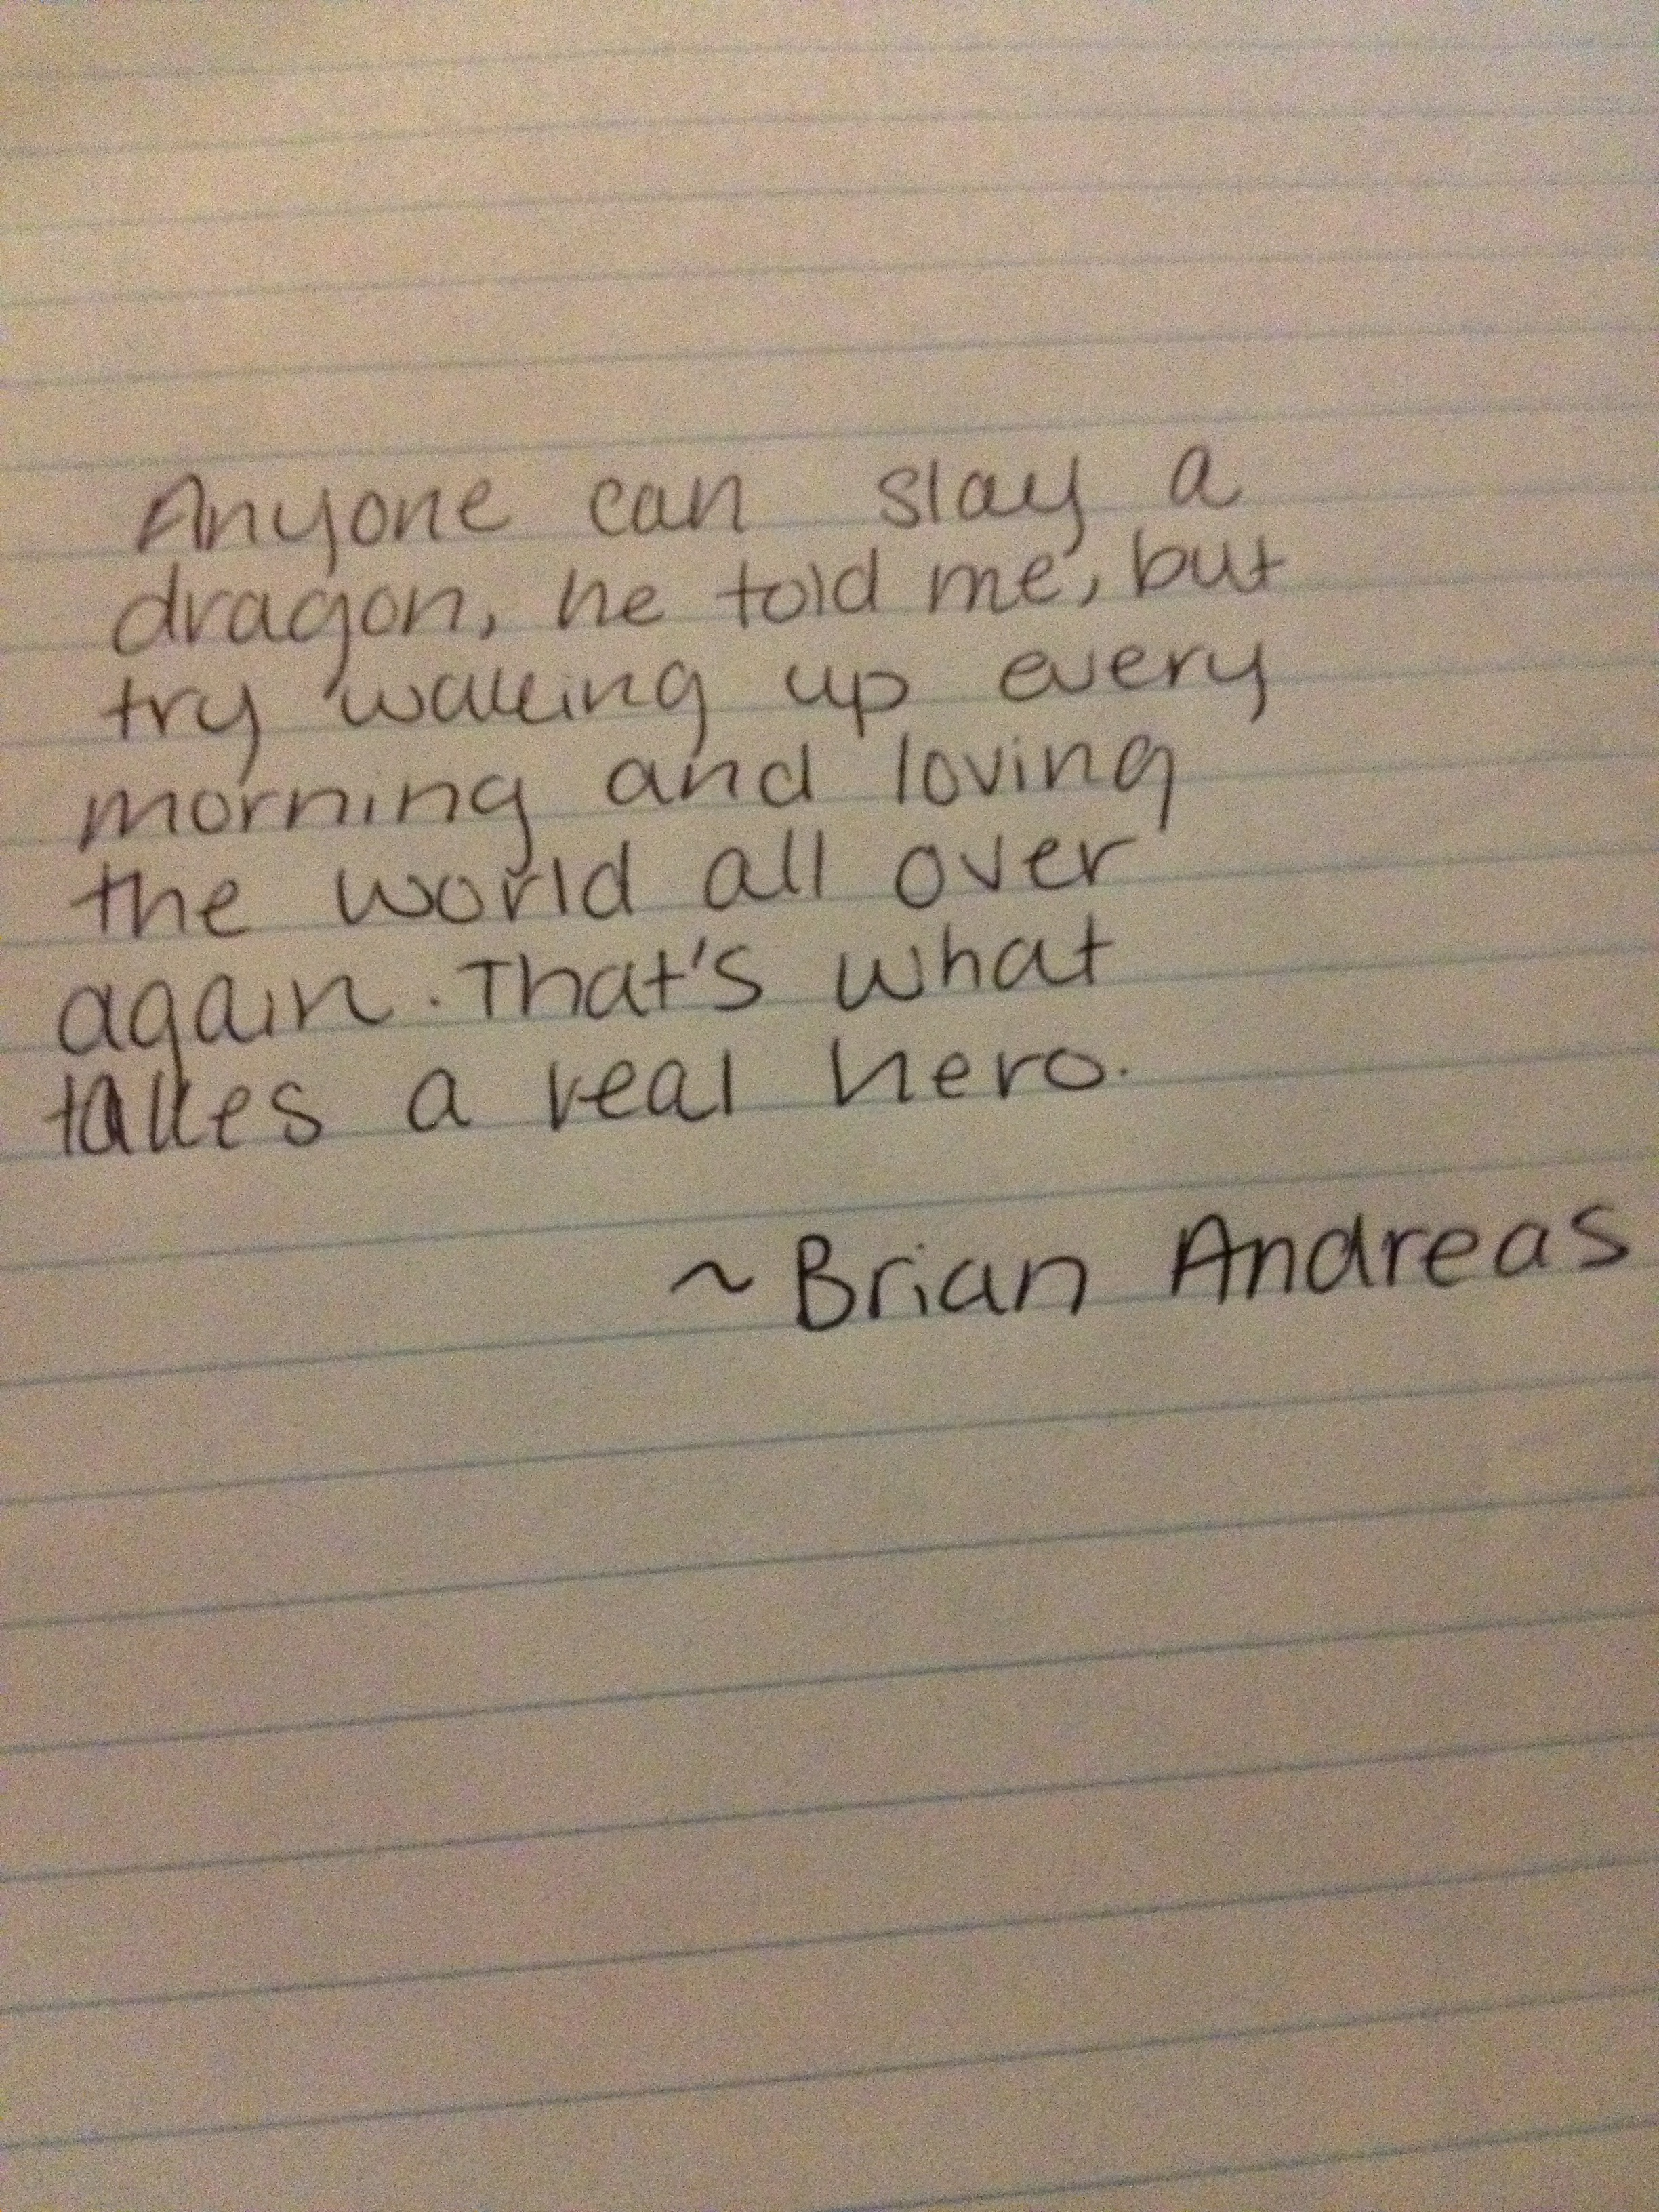 Anyone can slay a
dragon, he told me, but
try waking up every
morning and loving
the world all over
again. That's what
takes a real hero.
~Brian Andreas